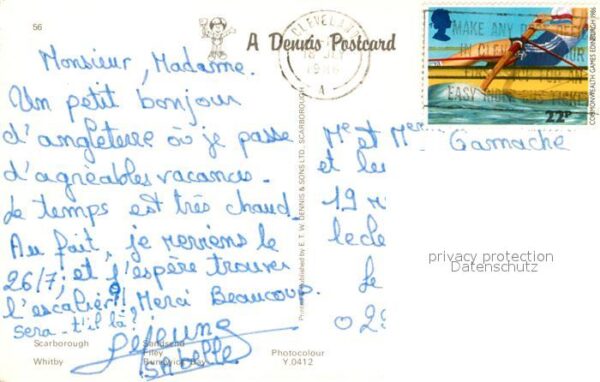 56
A Dennis Postcard
CLEVELAND
1986
A
MAKE ANY
EASY
22P
COMMONWEALTH GAMES EDINBURGH 1986
Monsieur, Madame.
Un petit bonjour
d'angleterre où je passe
d'agréables vacances.
Le temps est très chaud.
Au fait, je reviens le
26/7; et j'espère trouver
l'escalier!! Merci Beaucoup.
sera-t'il là?
Lejeune
Isabelle
Printed & published by E. T. W. DENNIS & SONS LTD., SCARBOROUGH
Mr et Mme Gamache
et le
19
lecle
Le
02
privacy protection
Datenschutz
Scarborough
Sandsend
Filey
Whitby
Bay
Photocolour
Y.0412